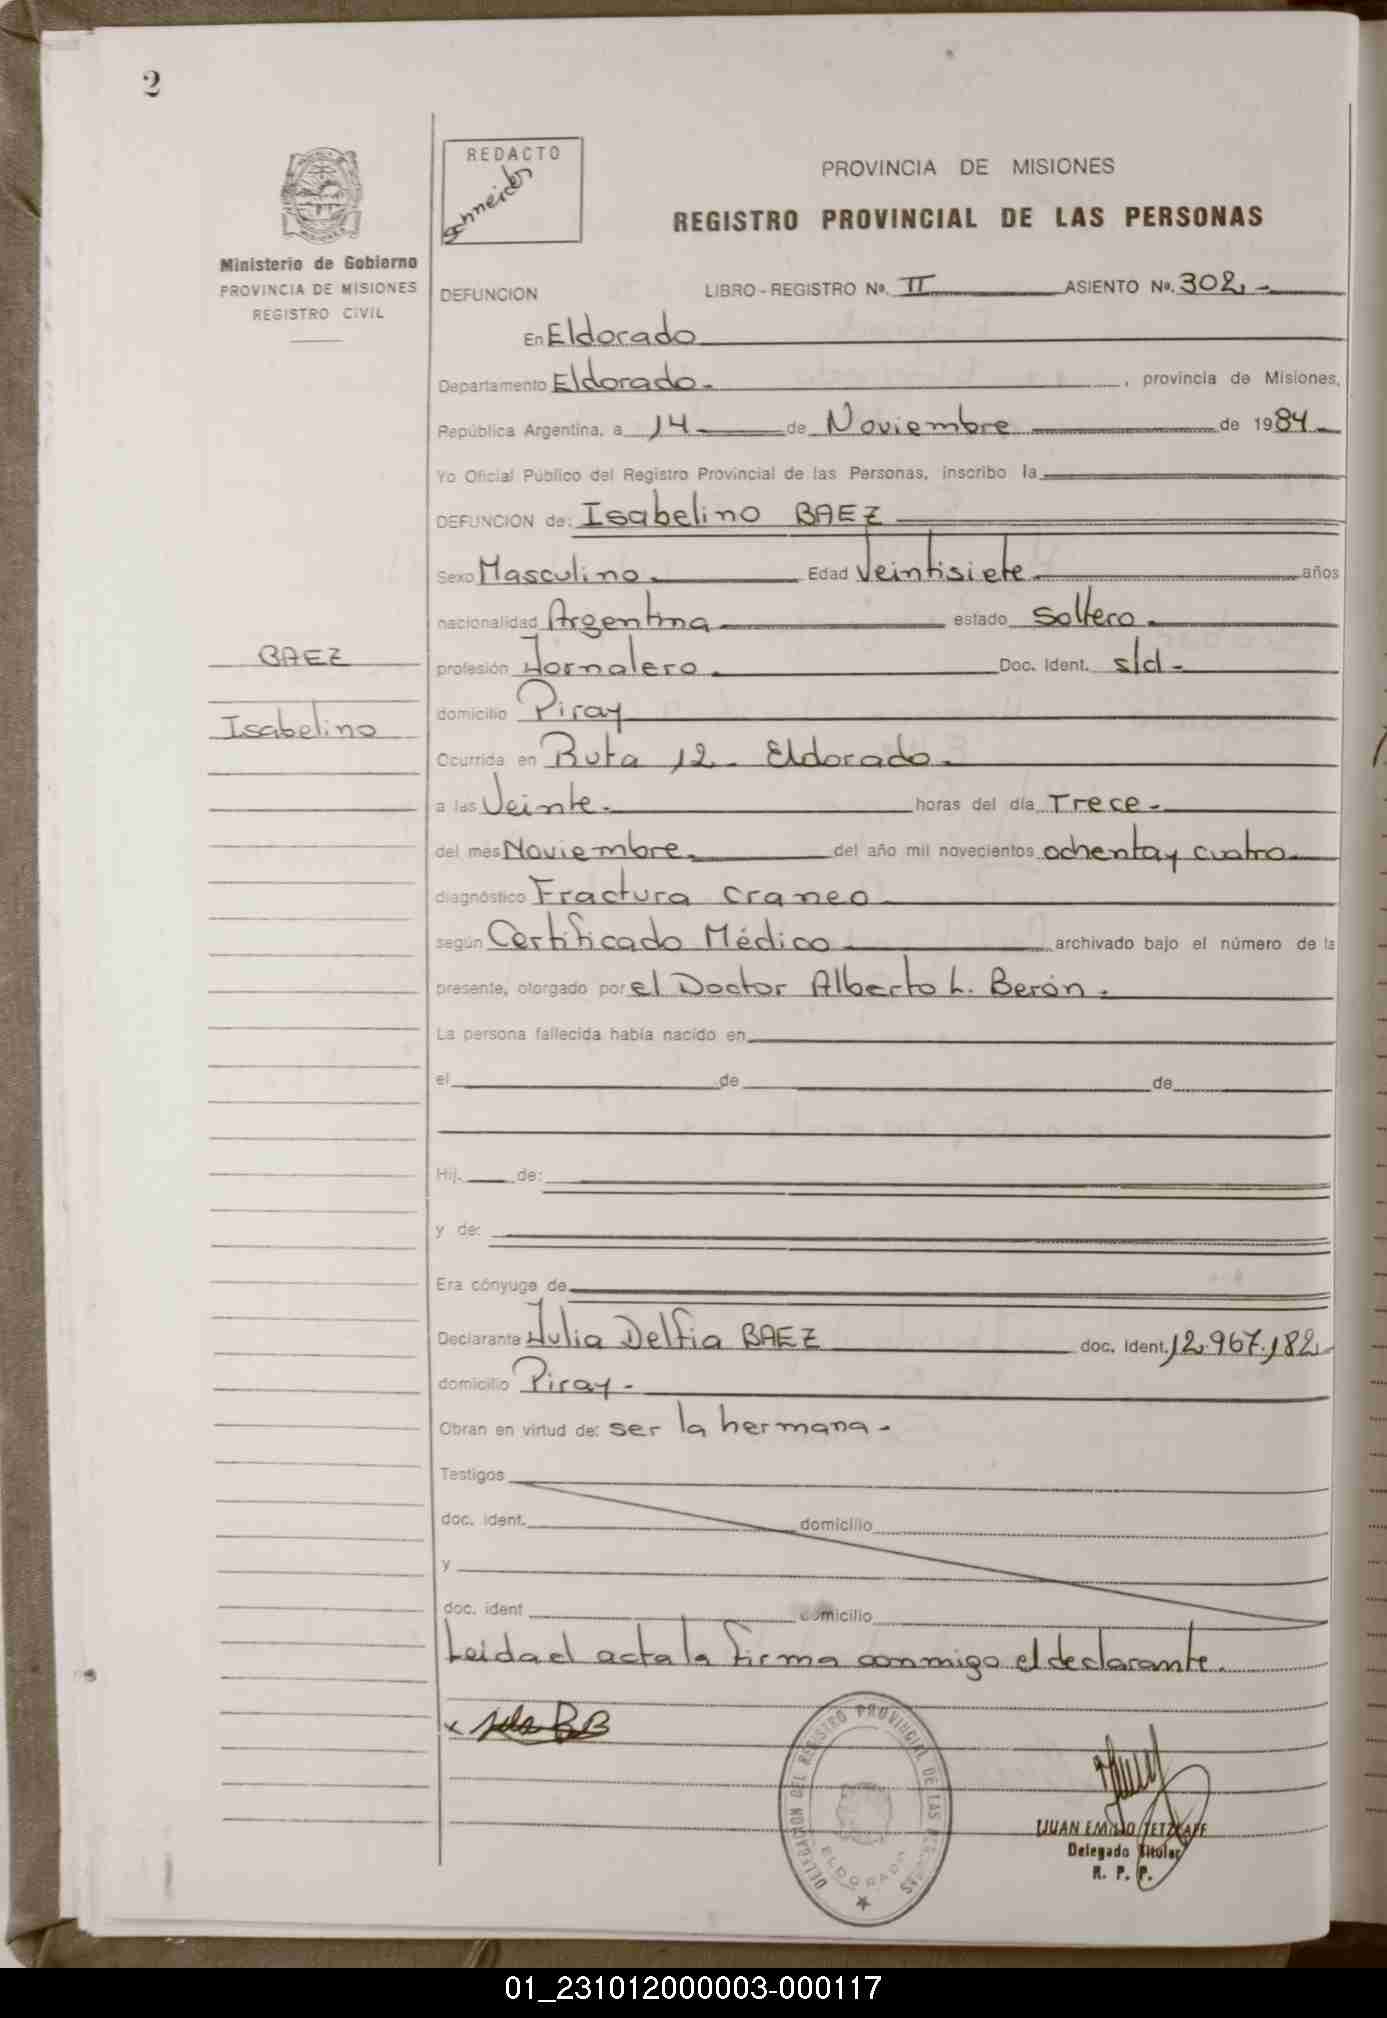 2
REDACTO
Schneider
PROVINCIA DE MISIONES
REGISTRO PROVINCIAL DE LAS PERSONAS
Ministerio de Gobierno
PROVINCIA DE MISIONES
REGISTRO CIVIL
DEFUNCION LIBRO-REGISTRO Nº. II ASIENTO Nº. 302.-
En Eldorado
Departamento Eldorado. , provincia de Misiones,
República Argentina, a 14 de Noviembre de 1984
Yo Oficial Público del Registro Provincial de las Personas, inscribo la
DEFUNCION de: Isabelino BAEZ
Sexo Masculino. Edad Veintisiete. años
nacionalidad Argentina estado soltero.
BAEZ
Isabelino
profesión Jornalero. Doc. Ident. s/d-
domicilio Piray
Ocurrida en Ruta 12- Eldorado.
a las Veinte. horas del día Trece.
del mes Noviembre. del año mil novecientos ochenta y cuatro
diagnóstico Fractura craneo
según Certificado Médico archivado bajo el número de la
presente, otorgado por el Doctor Alberto L. Berón.
La persona fallecida había nacido en
el de de
Hij. de:
y de:
Era cónyuge de
Declarante Julia Delfia BAEZ doc. ident. 12.967.182
domicilio Piray-
Obran en virtud de: ser la hermana-
Testigos
doc. ident. domicilio
y
doc. ident domicilio
Leida el acta la firma conmigo el declarante.
DELEGACION DEL REGISTRO PROVINCIAL DE LAS PERSONAS
ELDORADO
JUAN EMILIO
Delegado Titular
R. P. P.
01_231012000003-000117